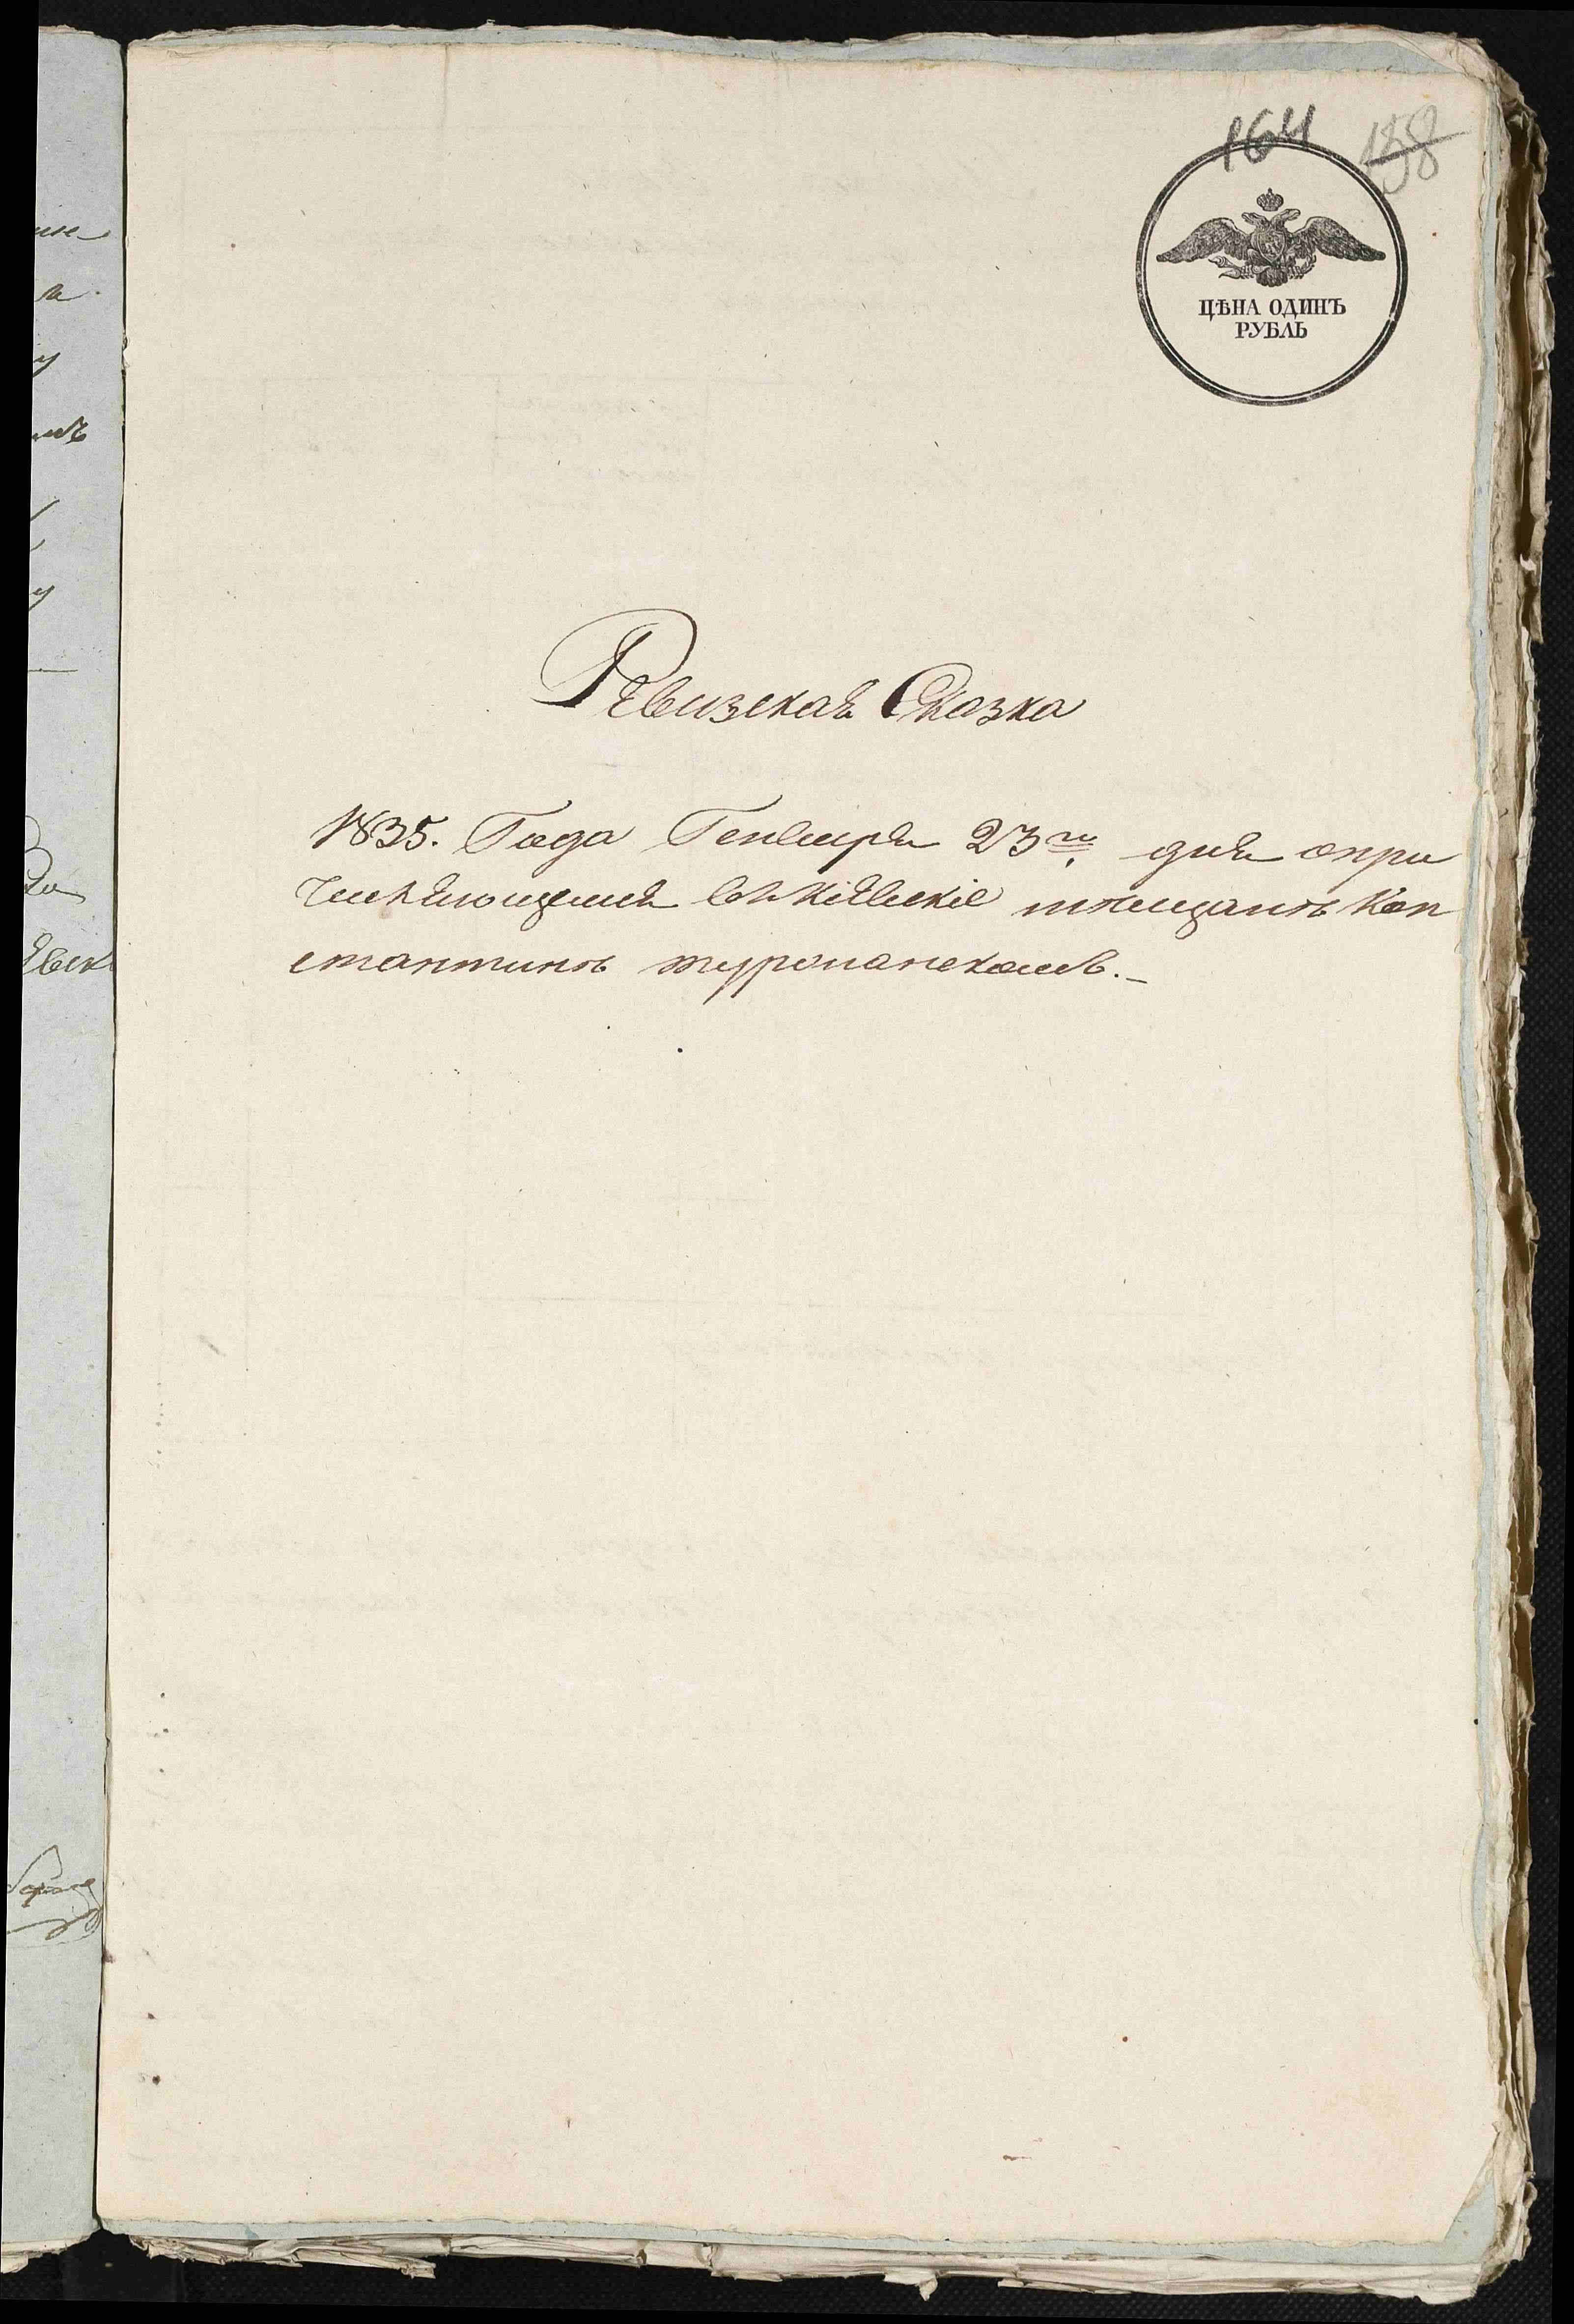 164 158
ЦѢНА ОДИНЪ
РУБЛЬ
Ревизская Сказка
1835. Года Генваря 23го дня опри
числяющемся въ Кіевскіе мѣщанъ Кон
стантинъ